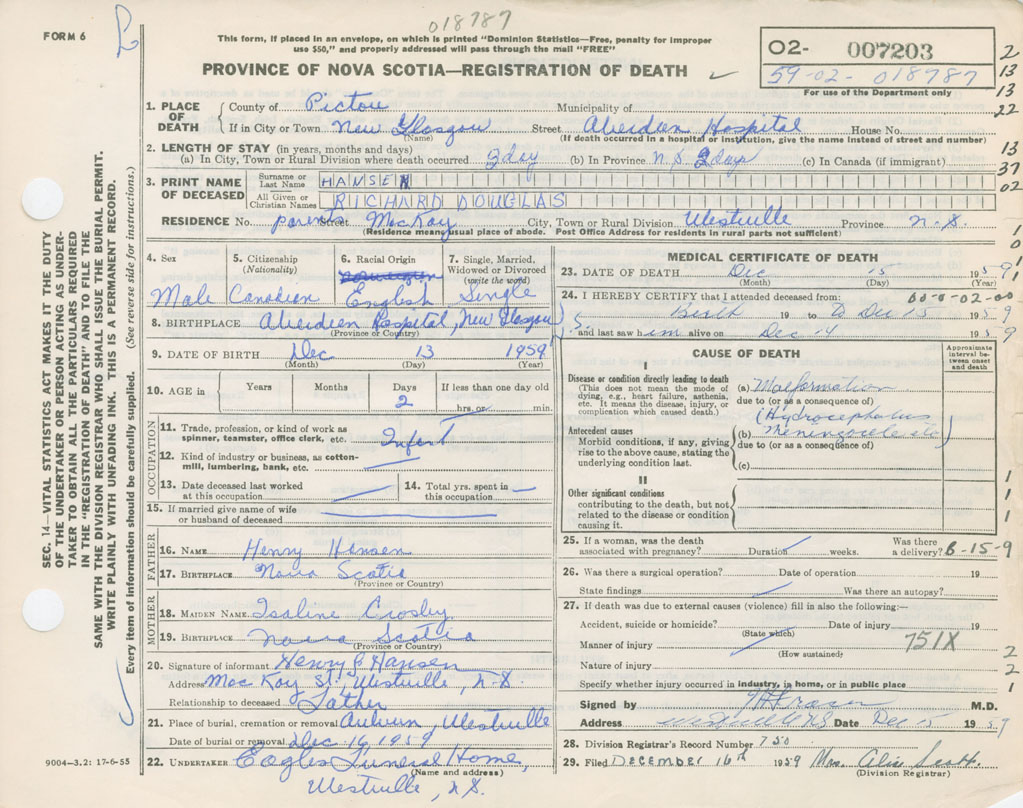 018787
FORM 6
This form, if placed in an envelope, on which is printed "Dominion Statistics—Free, penalty for improper
use $50," and properly addressed will pass through the mail "FREE"
PROVINCE OF NOVA SCOTIA—REGISTRATION OF DEATH
O2- 007203
59-02-018787
For use of the Department only
2
13
13
22
13
37
02
1. PLACE OF DEATH
County of Pictou Municipality of
If in City or Town New Glasgow Street Aberdeen Hospital House No.
(Name) (If death occurred in a hospital or institution, give the name instead of street and number)
2. LENGTH OF STAY (in years, months and days)
(a) In City, Town or Rural Division where death occurred 2 day (b) In Province N.S. 2 days (c) In Canada (if immigrant)
3. PRINT NAME OF DECEASED
Surname or Last Name HANSEN
All Given or Christian Names RICHARD DOUGLAS
RESIDENCE No. parents Street MacKay City, Town or Rural Division Westville Province N.S.
(Residence means usual place of abode. Post Office Address for residents in rural parts not sufficient)
4. Sex 5. Citizenship (Nationality) 6. Racial Origin 7. Single, Married, Widowed or Divorced (write the word)
Norwegian
Male Canadian English Single
8. BIRTHPLACE Aberdeen Hospital, New Glasgow
(Province or Country)
9. DATE OF BIRTH Dec 13 1959
(Month) (Day) (Year)
10. AGE in Years Months Days If less than one day old
2 hrs. or min.
OCCUPATION
11. Trade, profession, or kind of work as
spinner, teamster, office clerk, etc. Infant
12. Kind of industry or business, as cotton-
mill, lumbering, bank, etc.
13. Date deceased last worked
at this occupation
14. Total yrs. spent in
this occupation
15. If married give name of wife
or husband of deceased
FATHER
16. NAME Henry Hansen
17. BIRTHPLACE Nova Scotia
(Province or Country)
MOTHER
18. MAIDEN NAME Isaline Crosby
19. BIRTHPLACE Nova Scotia
(Province or Country)
20. Signature of informant Henry B Hansen
Address MacKay St. Westville, N.S.
Relationship to deceased Father
21. Place of burial, cremation or removal Auburn, Westville
Date of burial or removal Dec 16 1959
22. UNDERTAKER Eagles Funeral Home,
(Name and address)
Westville, N.S.
MEDICAL CERTIFICATE OF DEATH
23. DATE OF DEATH Dec 15 1959
(Month) (Day) (Year)
24. I HEREBY CERTIFY that I attended deceased from:
Birth 19 to Dec 15 1959
and last saw him alive on Dec 14 1959
CAUSE OF DEATH
Approximate interval between onset and death
I
Disease or condition directly leading to death
(This does not mean the mode of
dying, e.g., heart failure, asthenia,
etc. It means the disease, injury, or
complication which caused death.)
(a) Malformation
due to (or as a consequence of)
(Hydrocephalus
Antecedent causes
Morbid conditions, if any, giving
rise to the above cause, stating the
underlying condition last.
(b) Meningocele etc)
due to (or as a consequence of)
(c)
II
Other significant conditions
contributing to the death, but not
related to the disease or condition
causing it.
25. If a woman, was the death
associated with pregnancy? Duration weeks. Was there
a delivery? B-15-9
26. Was there a surgical operation? Date of operation 19
State findings Was there an autopsy?
27. If death was due to external causes (violence) fill in also the following:—
Accident, suicide or homicide? Date of injury 19
(State which)
Manner of injury 751X
(How sustained)
Nature of injury
Specify whether injury occurred in industry, in home, or in public place
Signed by M.D.
Address Westville N.S. Date Dec 15 1959
28. Division Registrar's Record Number 750
29. Filed DECEMBER 16th 1959 Mrs. Alice Scott.
(Division Registrar)
SEC. 14—VITAL STATISTICS ACT MAKES IT THE DUTY
OF THE UNDERTAKER OR PERSON ACTING AS UNDER-
TAKER TO OBTAIN ALL THE PARTICULARS REQUIRED
IN THE "REGISTRATION OF DEATH" AND TO FILE THE
SAME WITH THE DIVISION REGISTRAR WHO SHALL ISSUE THE BURIAL PERMIT.
WRITE PLAINLY WITH UNFADING INK. THIS IS A PERMANENT RECORD.
Every item of information should be carefully supplied. (See reverse side for instructions.)
9004—3.2: 17-6-55